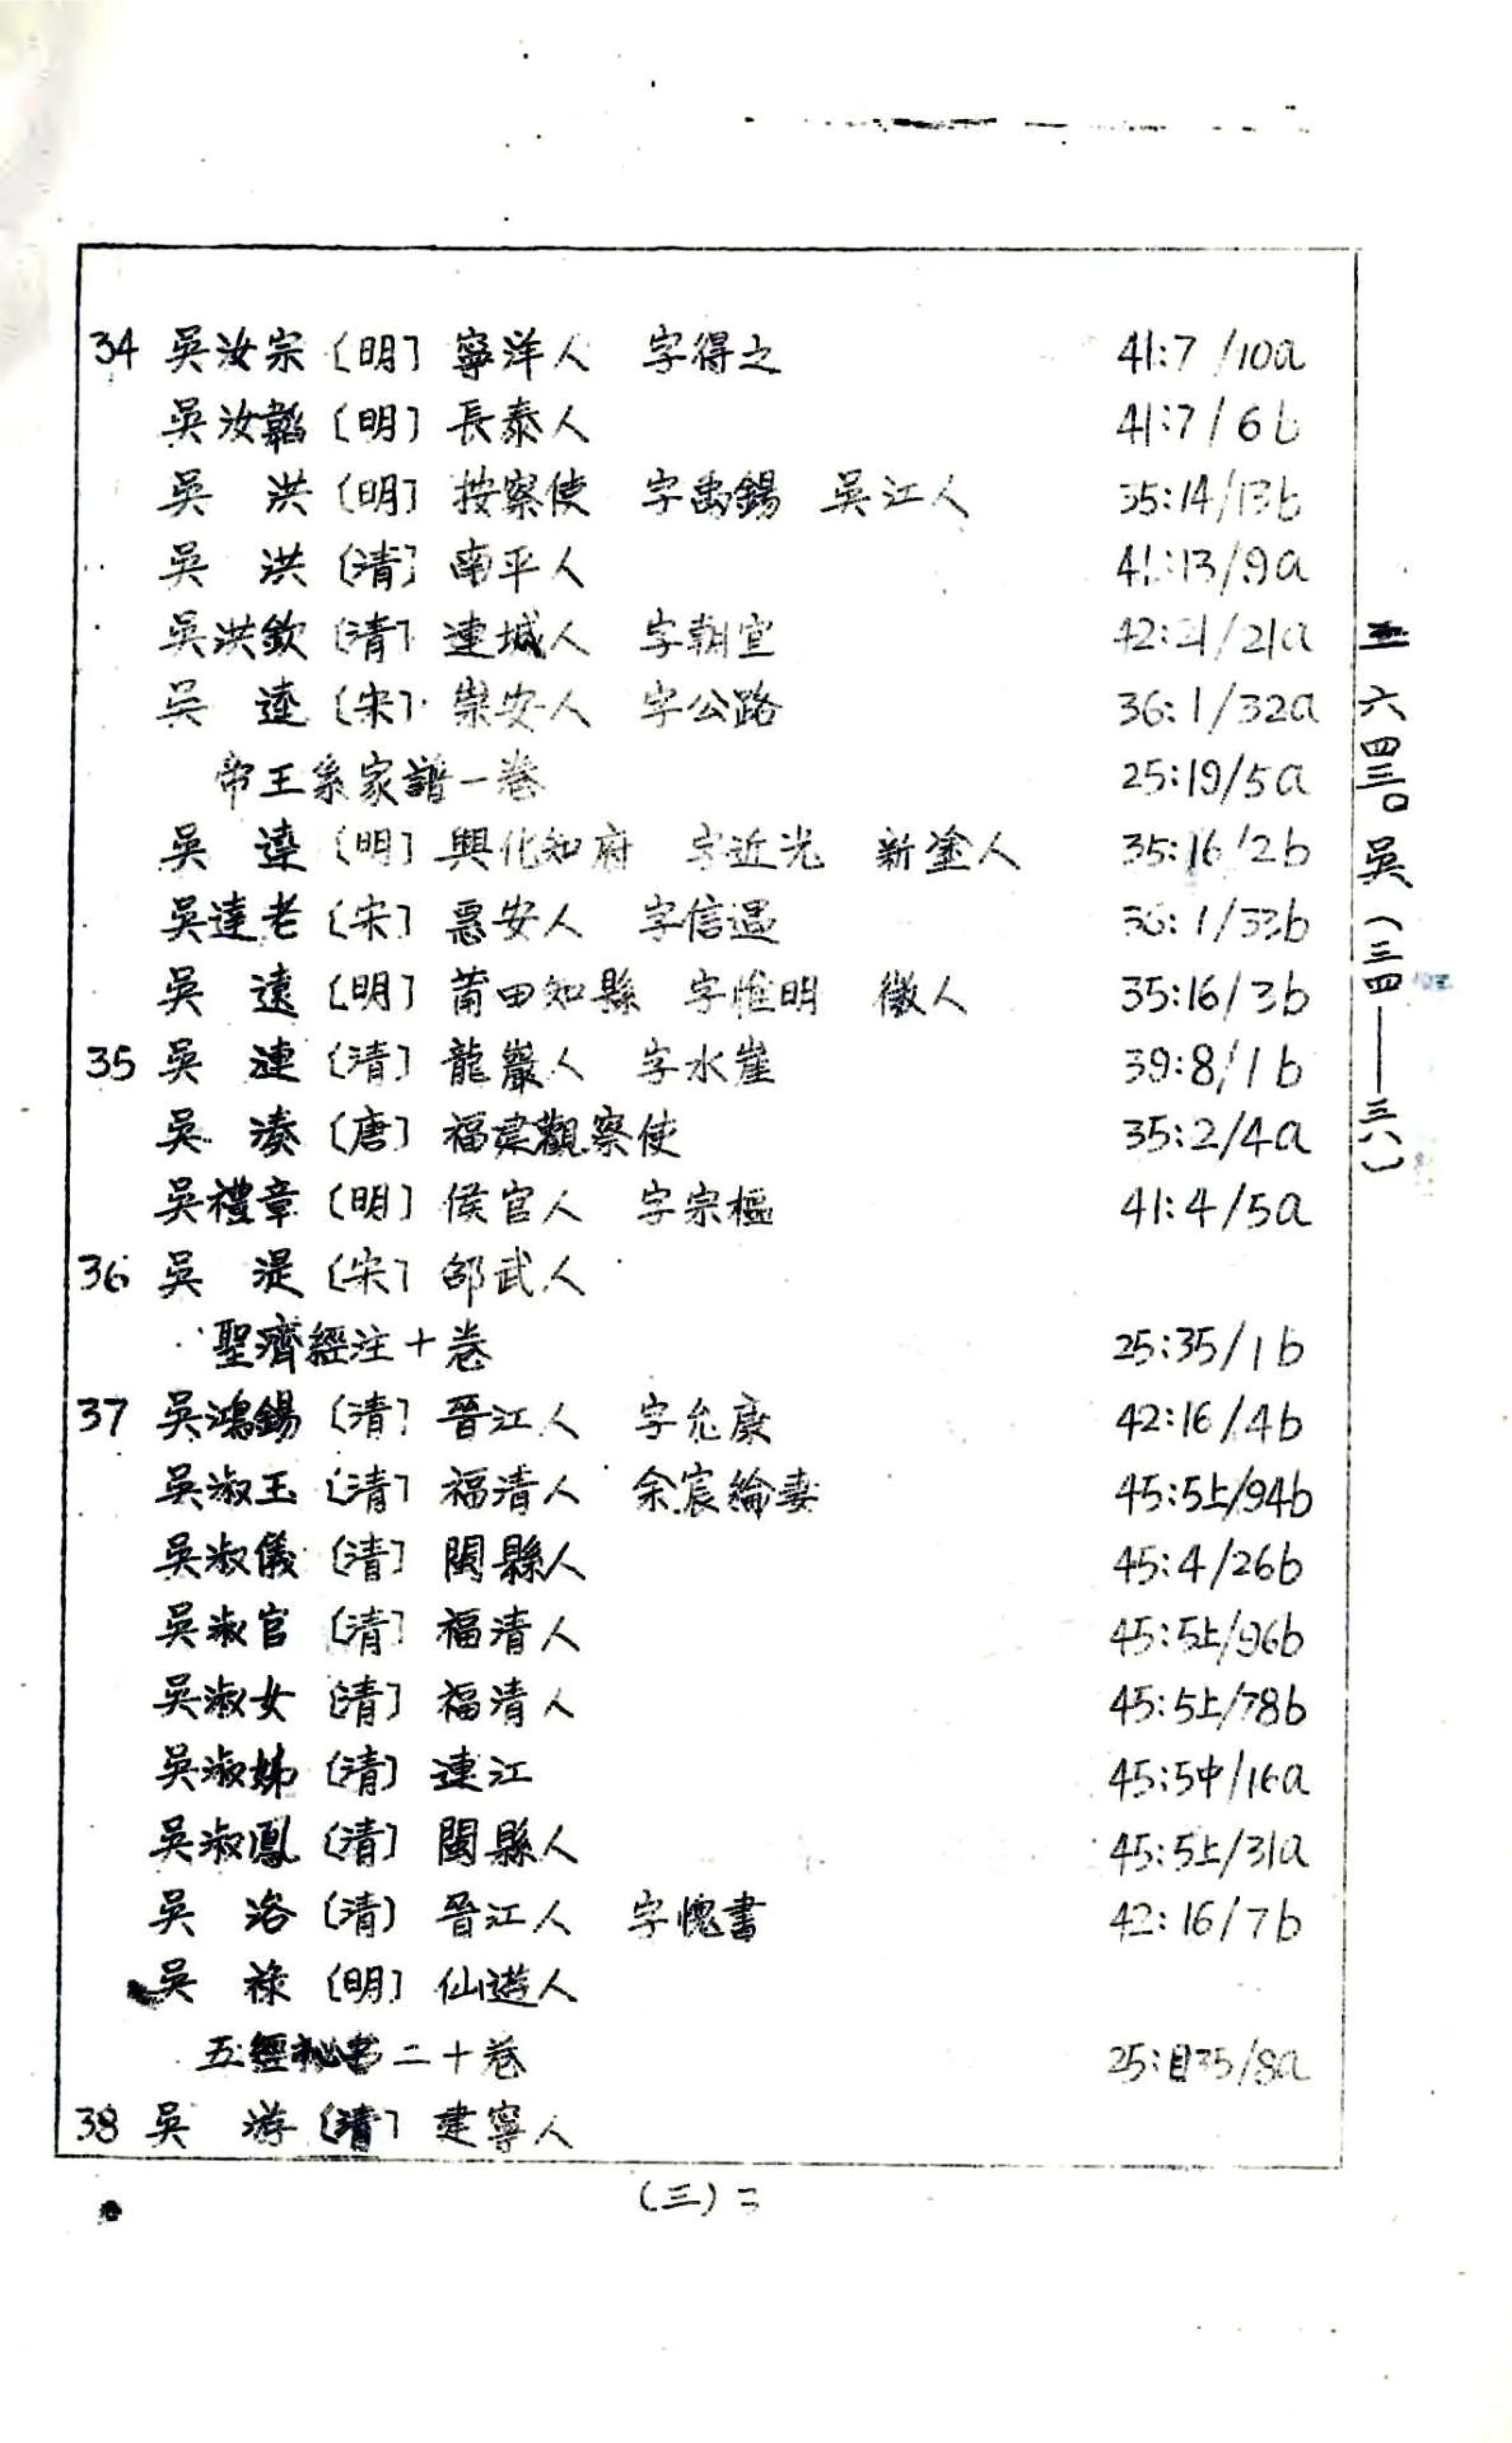 34 吳汝宗〔明〕寧洋人 字得之 41:7/10a
吳汝韜〔明〕長泰人 41:7/6b
吳 洪〔明〕按察使 字禹錫 吳江人 35:14/13b
吳 洪〔清〕南平人 41:13/9a
吳洪欽〔清〕連城人 字朝宜 42:21/21a
吳 逵〔宋〕崇安人 字公路 36:1/32a
帝王系家譜一卷 25:19/5a
吳 逵〔明〕興化知府 字近光 新塗人 35:16/2b
吳逵老〔宋〕惠安人 字信遇 36:1/33b
吳 遠〔明〕莆田知縣 字惟明 徽人 35:16/3b
35 吳 連〔清〕龍巖人 字水崖 39:8/1b
吳 湊〔唐〕福建觀察使 35:2/4a
吳禮章〔明〕侯官人 字宗樞 41:4/5a
36 吳 湜〔宋〕邵武人
聖濟經注十卷 25:35/1b
37 吳鴻錫〔清〕晉江人 字允康 42:16/4b
吳淑玉〔清〕福清人 余宸綸妻 45:5上/94b
吳淑儀〔清〕閩縣人 45:4/26b
吳淑官〔清〕福清人 45:5上/96b
吳淑女〔清〕福清人 45:5上/78b
吳淑姊〔清〕連江 45:5中/16a
吳淑鳳〔清〕閩縣人 45:5上/31a
吳 洛〔清〕晉江人 字愧書 42:16/7b
吳 祿〔明〕仙遊人
五經秘書二十卷 25:目35/8a
38 吳 游〔清〕建寧人
六四三〇吳(三四——三八)
(三)二